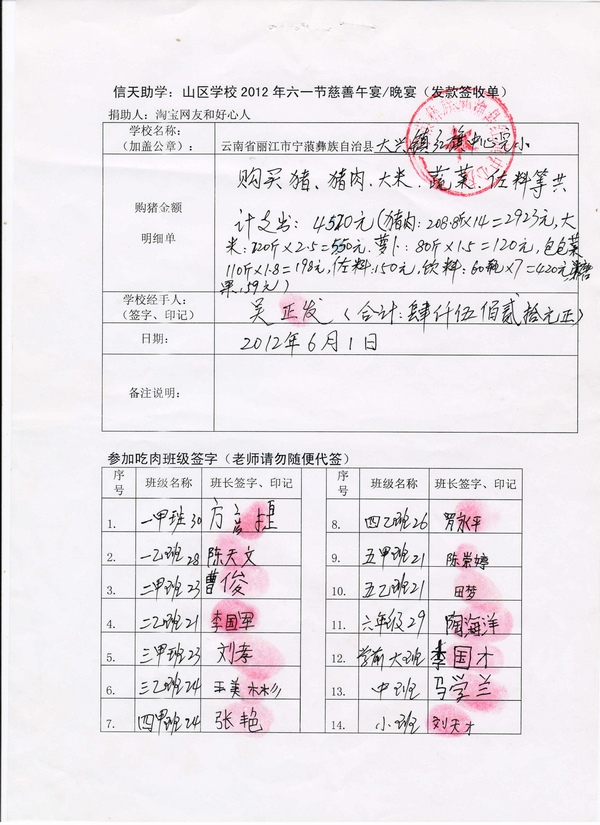 信天助学：山区学校2012年六一节慈善午宴/晚宴（发款签收单）
捐助人：淘宝网友和好心人
学校名称：
（加盖公章）：
云南省丽江市宁蒗彝族自治县大兴镇红旗中心完小
购猪金额
明细单
购买猪、猪肉、大米、蔬菜、佐料等共
计支出：4520元（猪肉：208.8斤×14=2923元，大
米：220斤×2.5=550元．萝卜：80斤×1.5=120元，包包菜
110斤×1.8=198元，佐料：150元，饮料：60瓶×7=420元
果，159元）
学校经手人：
（签字、印记）
吴正发（合计：肆仟伍佰贰拾元正）
日期：
2012年6月1日
备注说明：
参加吃肉班级签字（老师请勿随便代签）
序号 班级名称 班长签字、印记 序号 班级名称 班长签字、印记
1. 一甲班30 方 捷 8. 四乙班26 罗永平
2. 一乙班28 陈天文 9. 五甲班21 陈崇婷
3. 二甲班23 曹俊 10. 五乙班21 田梦
4. 二乙班21 李国军 11. 六年级29 陶海洋
5. 三甲班23 刘孝 12. 学前大班 李国才
6. 三乙班24 王美彬 13. 中班 马学兰
7. 四甲班24 张艳 14. 小班 刘天才